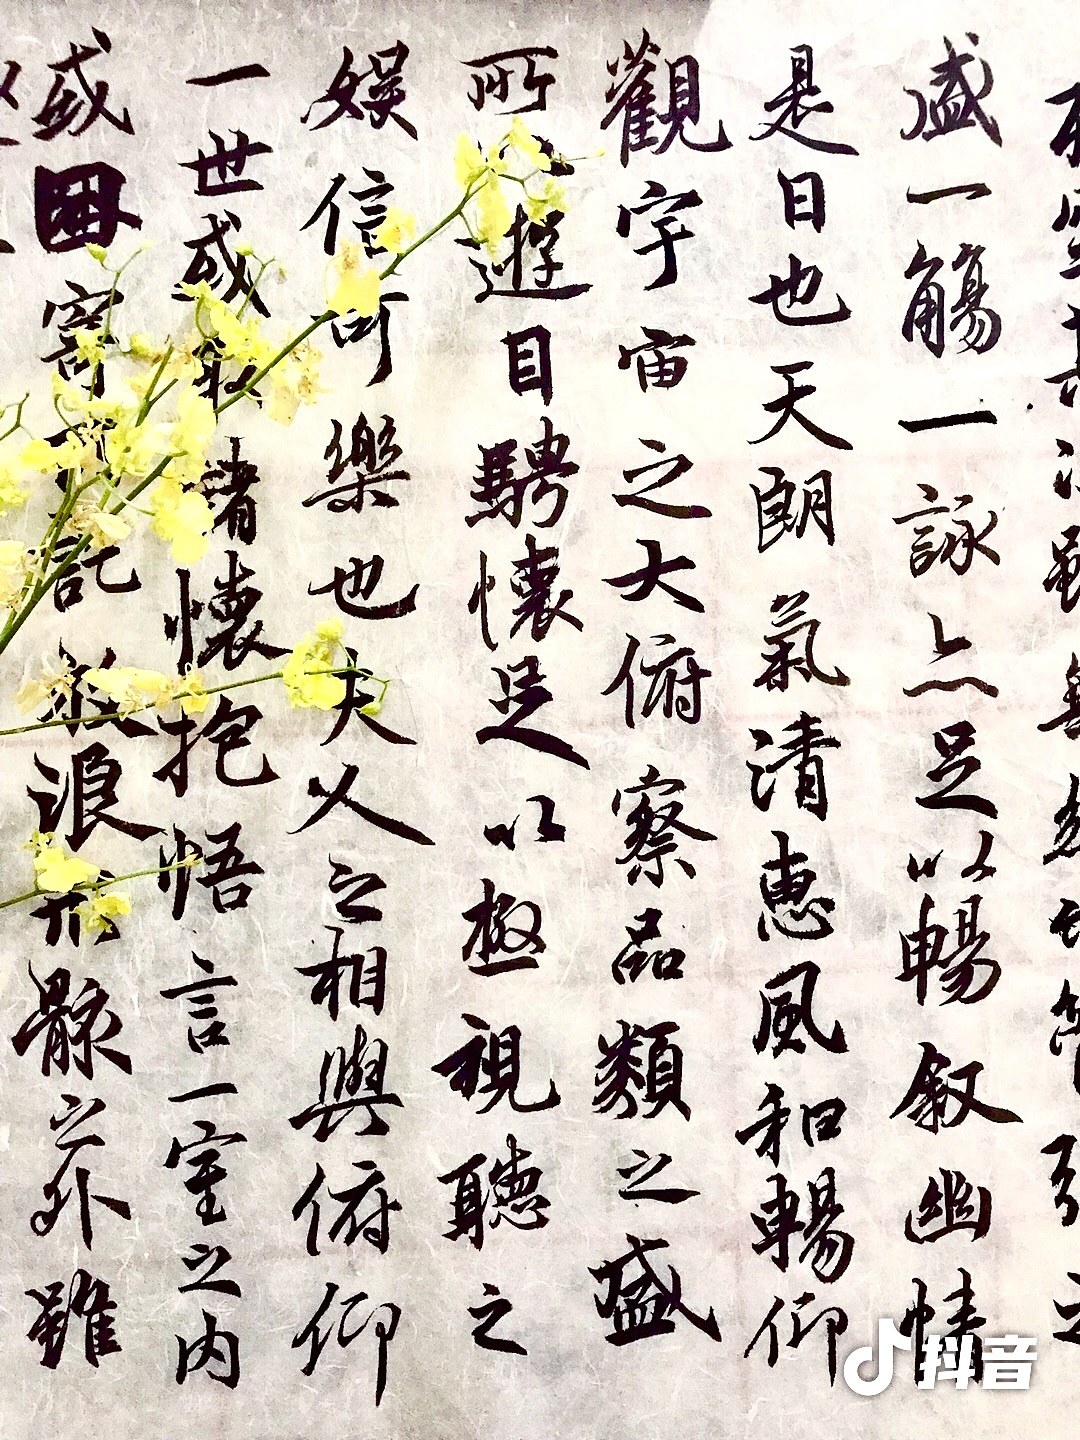 盛一觴一詠亦足以暢叙幽情
是日也天朗氣清惠風和暢仰
觀宇宙之大俯察品類之盛
所遊目騁懷足以極視聽之
娛信可樂也夫人之相與俯仰
一世或取諸懷抱悟言一室之内
或因寄託放浪形骸之外雖
抖音